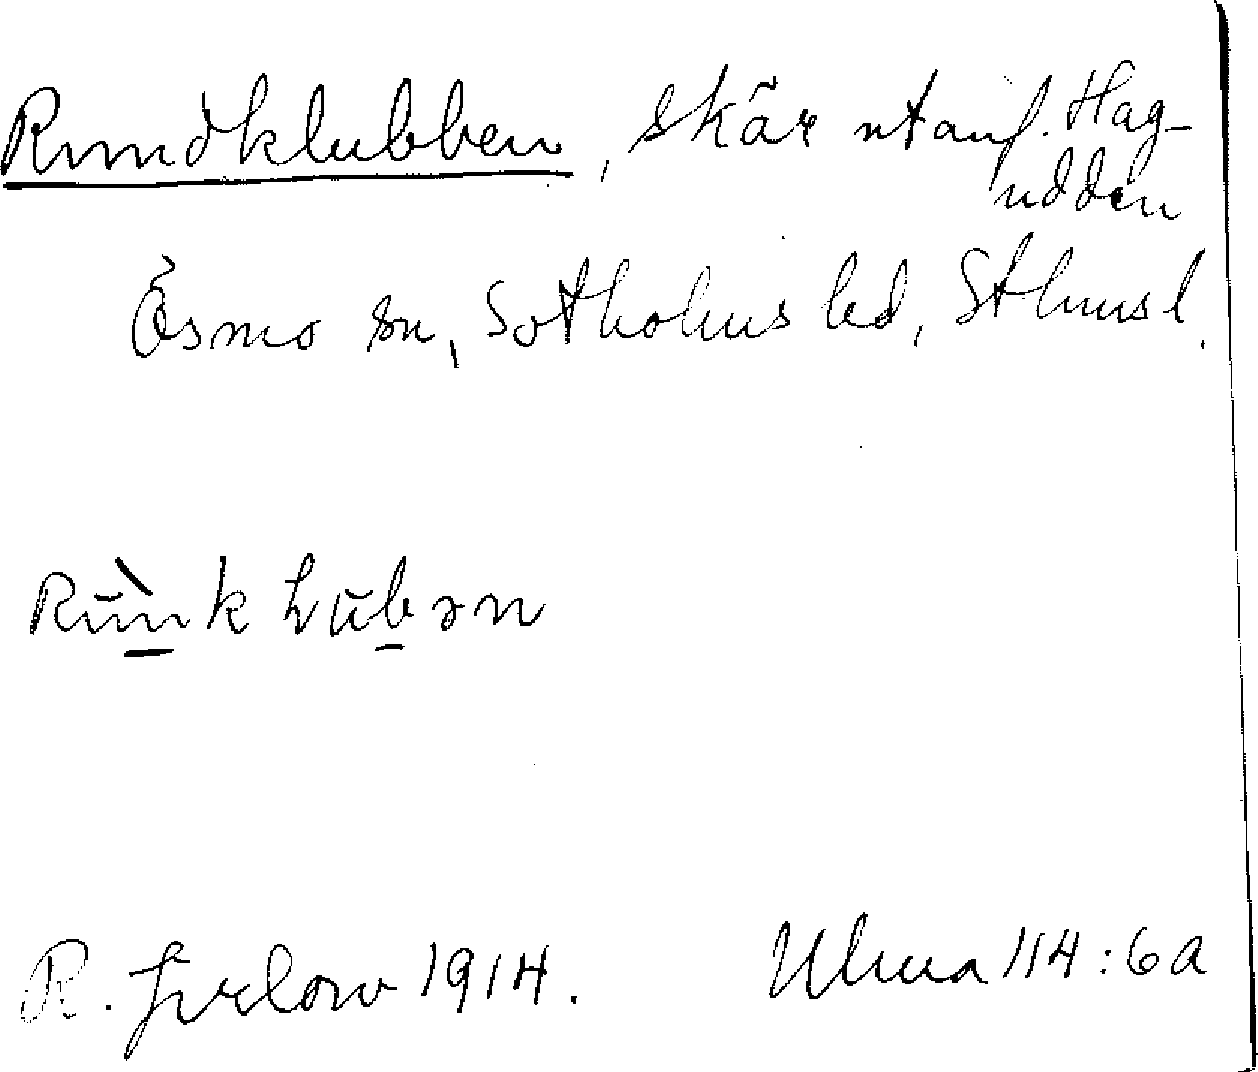 Rundklubben, skär utanf. Hag-
udden
Ösmo sn, Sotholms hd, Sthms l.
R. 1914. Ulma 114:6a